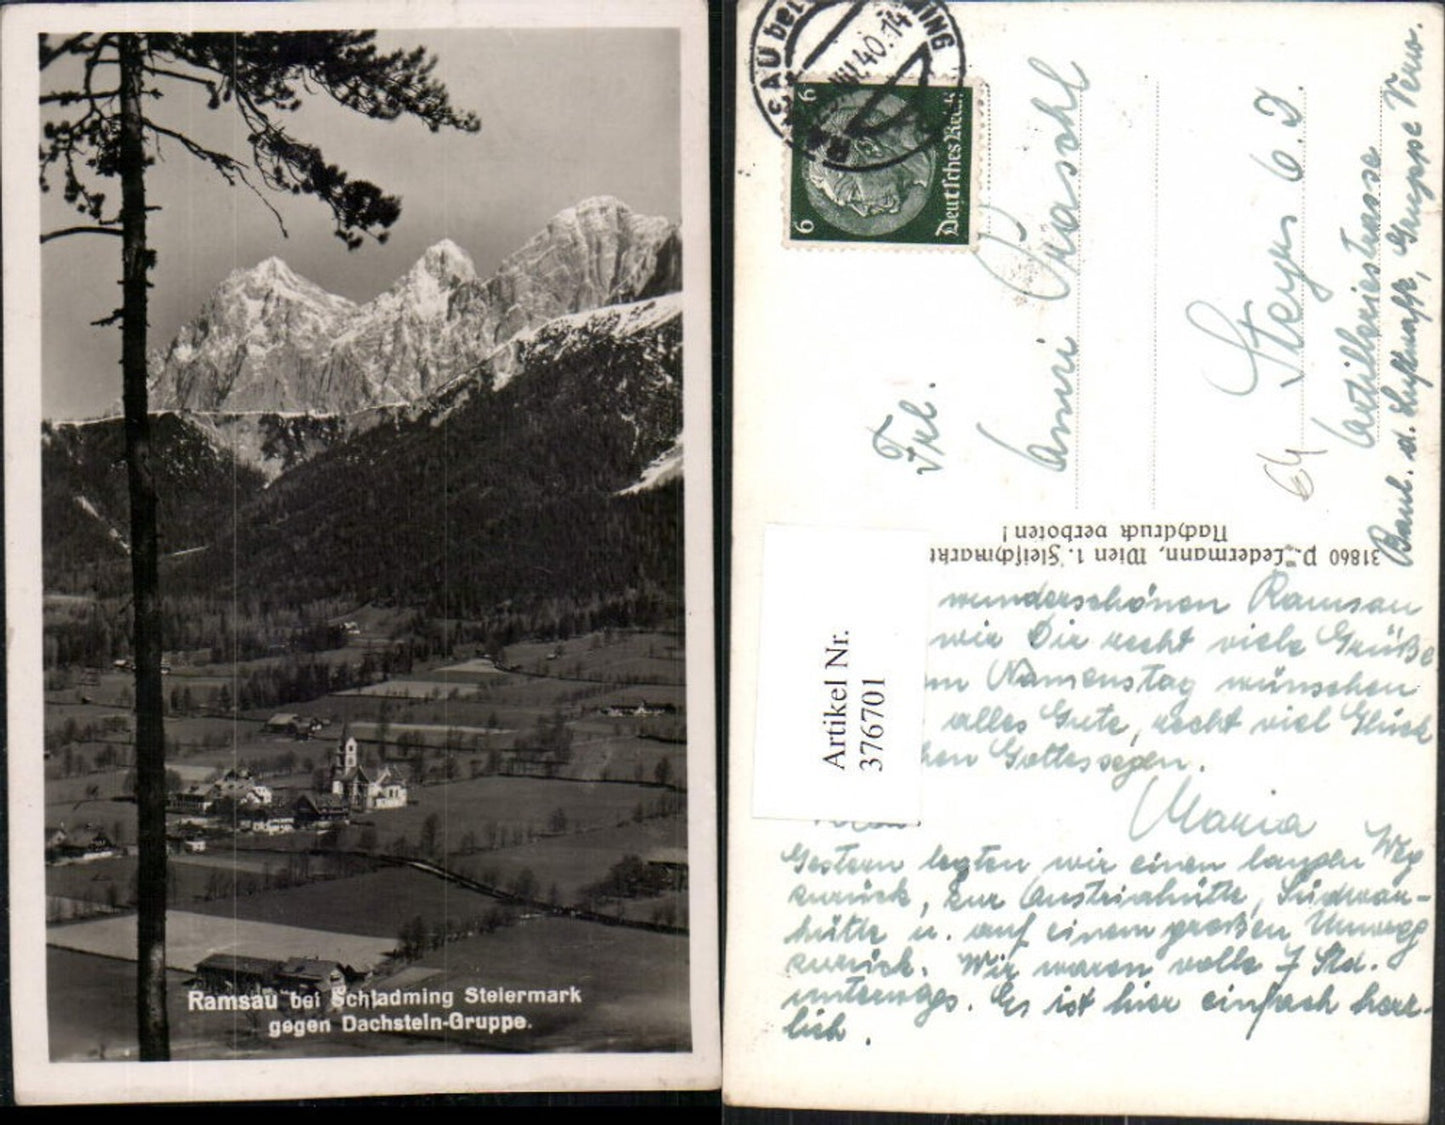 Ramsau bei Schladming Steiermark
gegen Dachstein-Gruppe.
6
6
Deutsches Reich
40.14
Frl.
Anni Praschl
Steyr 6.D
Artilleriestrasse
64
31860 P. Ledermann, Wien 1. Fleischmarkt
Nachdruck verboten!
Artikel Nr.
376701
wunderschönen Ramsau
wir Dir recht viele Grüße
Namenstag wünschen
alles Gute, recht viel Glück
Gottessegen.
Maria
Gestern legten wir einen langen Weg
zurück, zur Austriahütte, Südwan-
hütte u. auf einem großen Umweg
zurück. Wir waren volle 7 Std.
unterwegs. Es ist hier einfach herr-
lich.